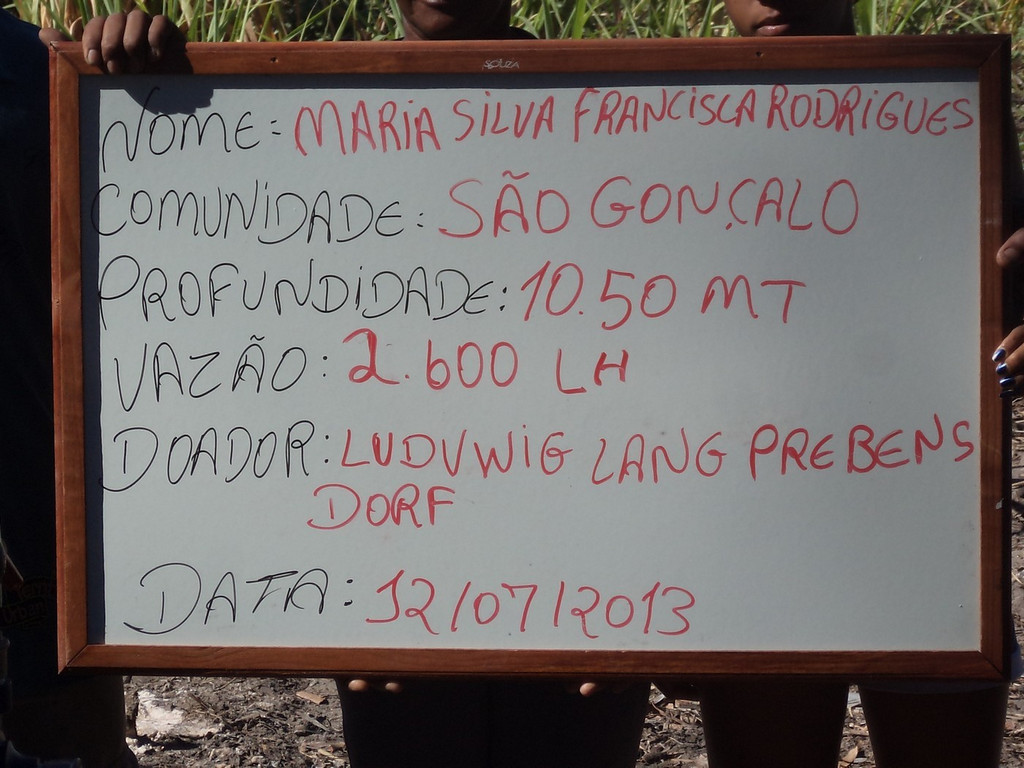 NOME: MARIA SILVA FRANCISCA RODRIGUES
COMUNIDADE: SÃO GONÇALO
PROFUNDIDADE: 10.50 MT
VAZÃO: 2.600 LH
DOADOR: LUDVWIG LANG PREBENS
DORF
DATA: 12/07/2013